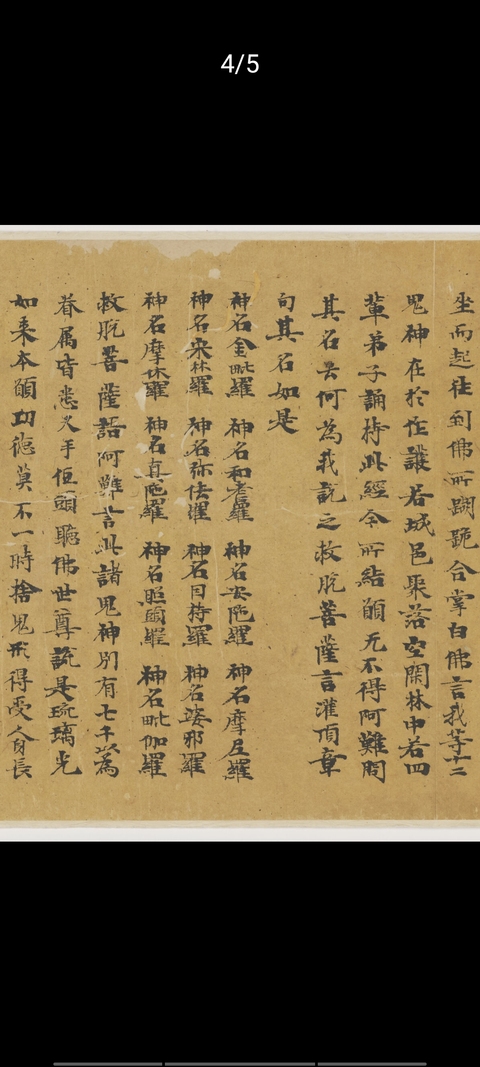 4/5
坐而起往到佛所𨅖跪合掌白佛言我等十二
鬼神在於作護若城邑聚落空閑林中若四
輩弟子誦持此經令所結願无不得阿難問
其名云何為我說之救脫菩薩言灌頂章
句其名如是
神名金毗羅 神名和耆羅 神名安陁羅 神名摩尼羅
神名宋林羅 神名弥佉羅 神名因持羅 神名婆耶羅
神名摩休羅 神名真陁羅 神名照頭羅 神名毗伽羅
救脫菩薩語阿難言此諸鬼神別有七千以為
眷屬皆悉叉手低頭聽佛世尊說是琉璃光
如来本願功德莫不一時捨鬼形得受人身長